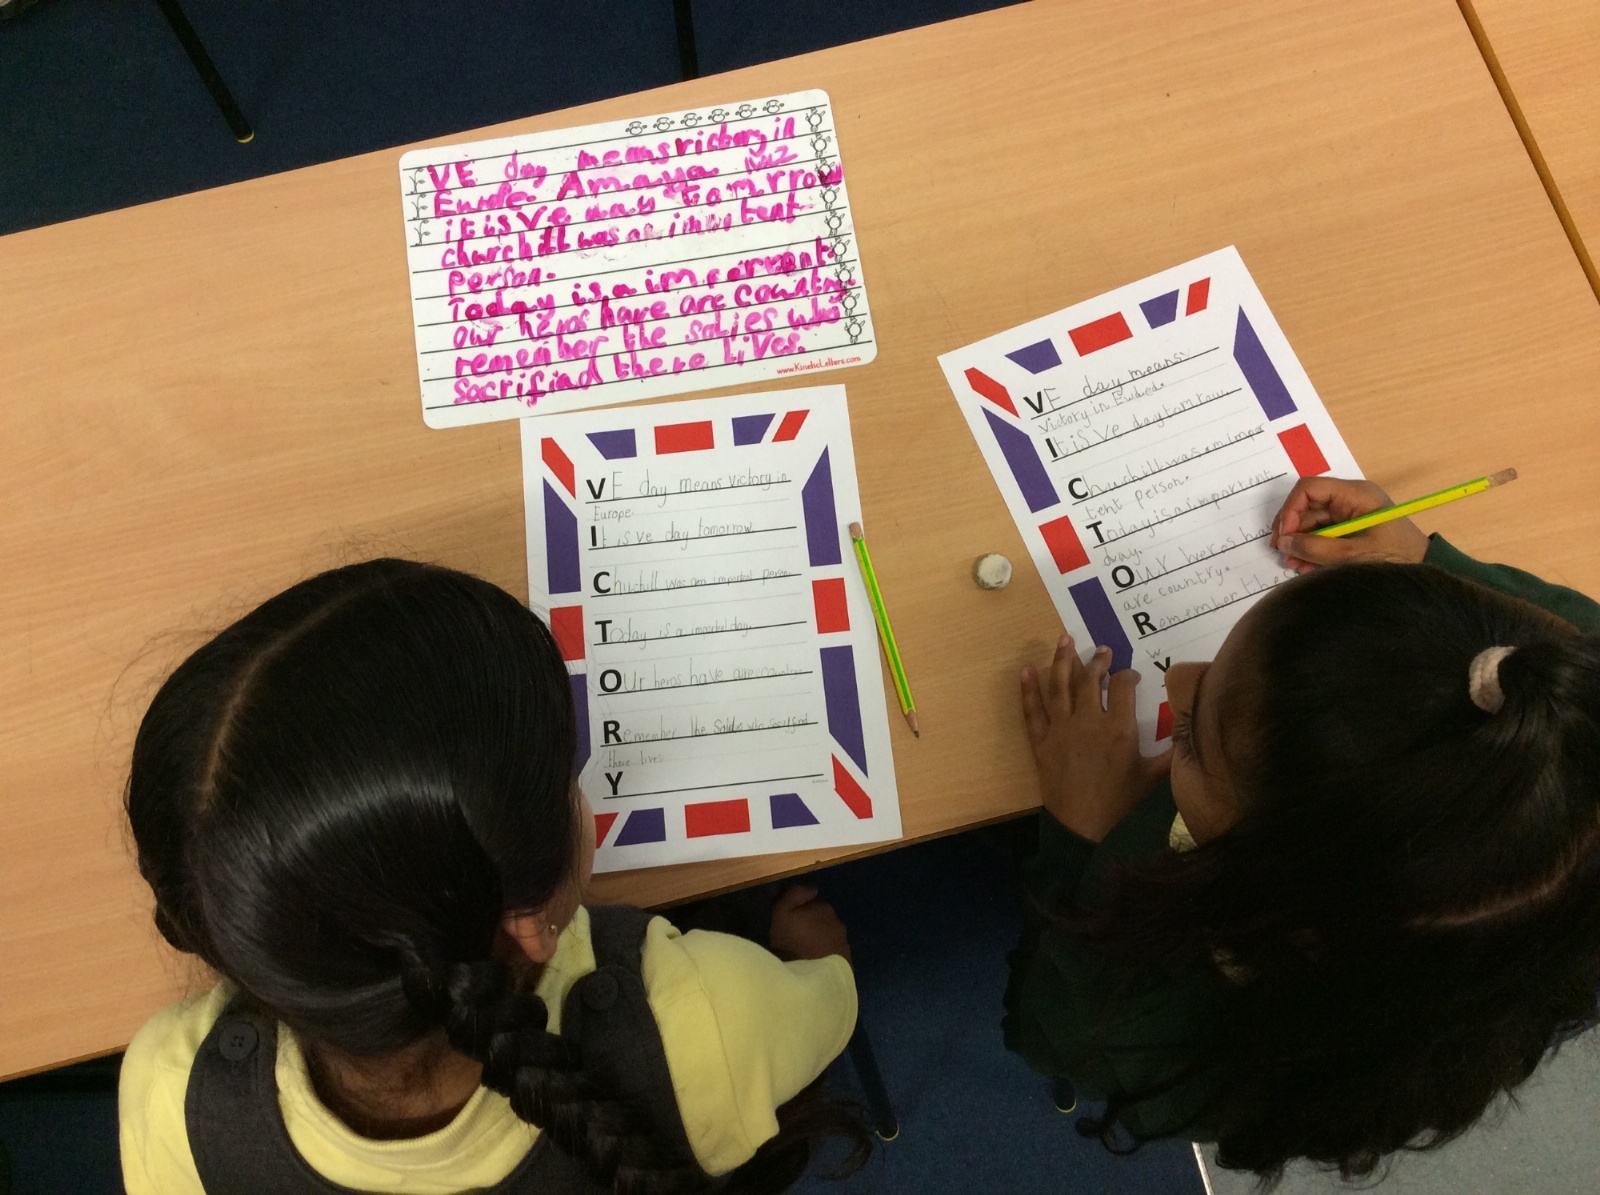 VE day means victory in
Amaya
it is Ve day tomrrow
churchill was an
Person.
Today is a
our heros have are
remember the solies who
sacrifind there lives.
www.KineticLetters.com
VE day means victory in
Europe.
It is ve day tomorrow
Churchill was am important person
Today is a day.
OUr heros have are
Remember the who
there lives
Y
VE day means
Victory in
It is Ve day tomrow.
was am impor
tent person.
Today is a importent
day.
OUr heros hav
are country.
Remember the
w
Y